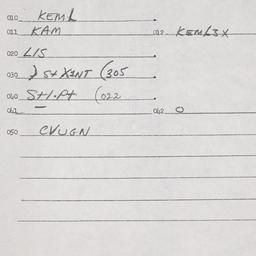 010 KEML
011 KAM 012 KEML3X
020 LIS
030 St XINT (305
040 St1.Pt (022
041 042 O
050 CVUGN